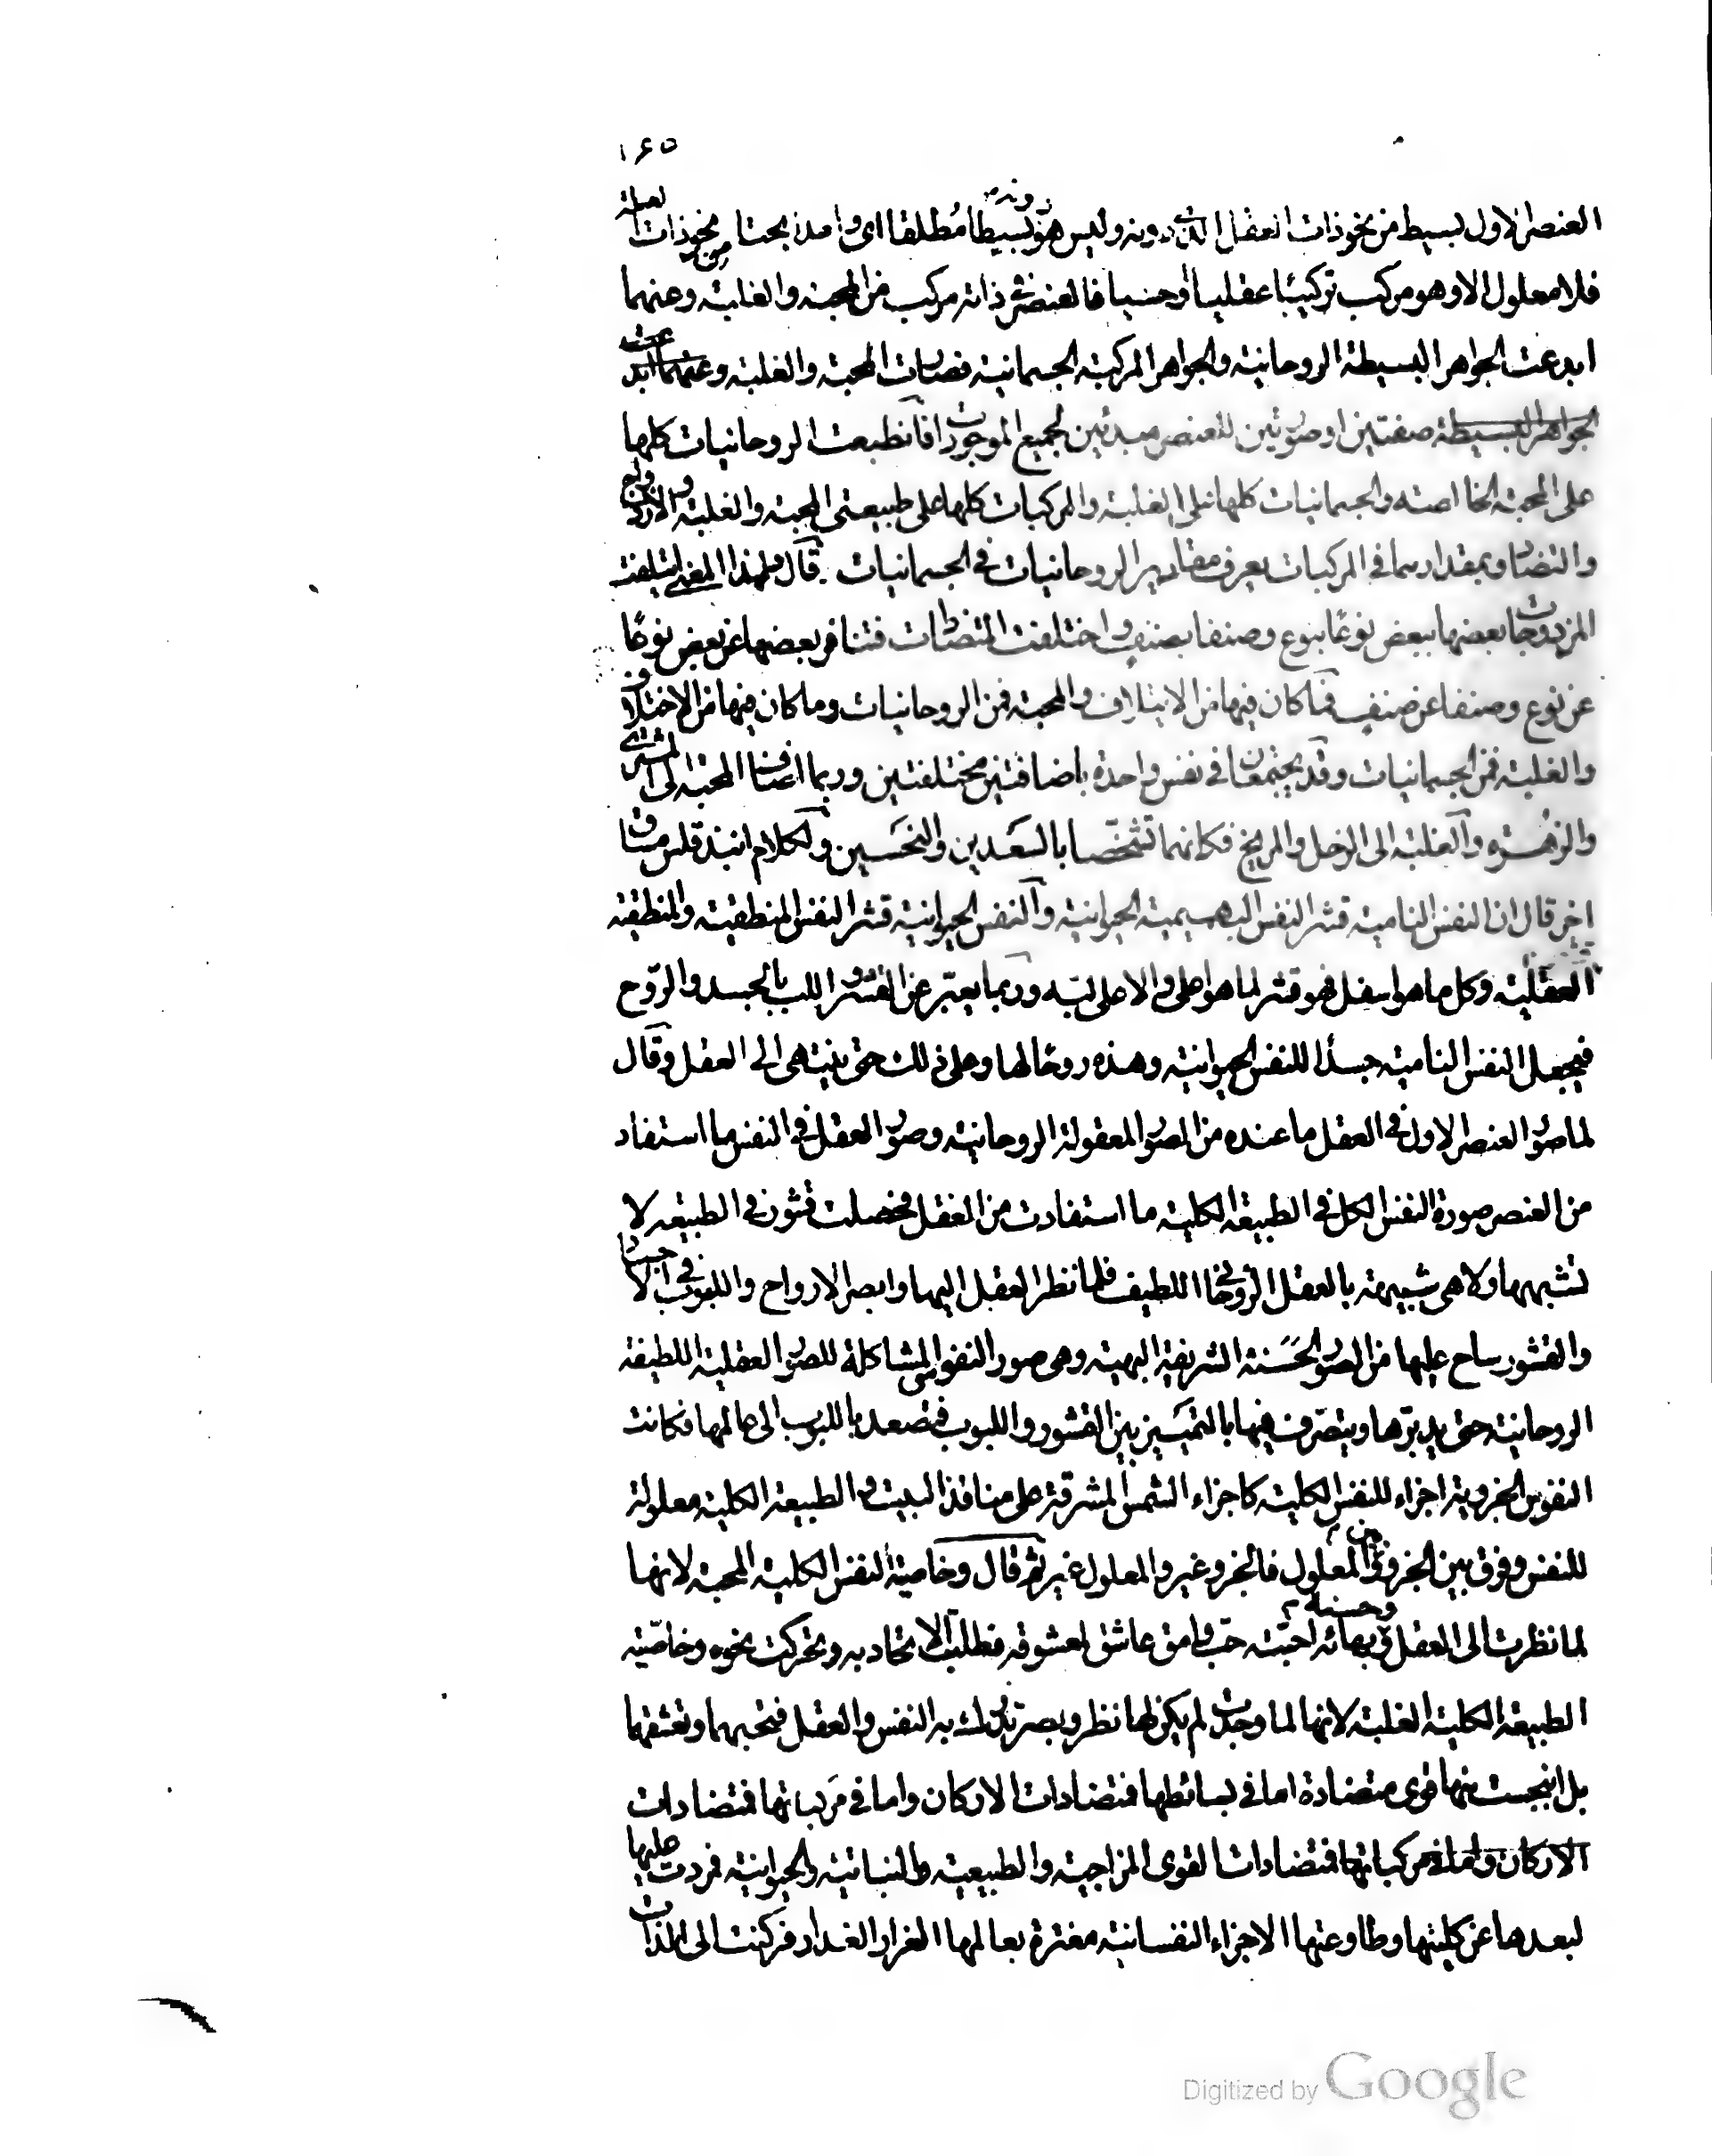 ١٦٥
العنصر الاول بسيط من نحو ذات العقل الذى دونه وليس هو دونه بسيطا مطلقا اى واحدا بحتا من نحو ذات العلة
فلا معلول الا وهو مركب تركيبا عقليا او حسيا فالعنصر فى ذاته مركب من المحبة والغلبة وعنهما
ابدعت الجواهر البسيطة الروحانية والجواهر المركبة الجسمانية فصارت المحبة والغلبة وعنهما ابدعت
الجواهر البسيطة صفتين او صورتين للعنصر مبدئين لجميع الموجودات فانطبعت الروحانيات كلها
على المحبة الخالصة والجسمانيات كلها على الغلبة والمركبات كلها على طبيعتى المحبة والغلبة والازدواج
والتضاد وبمقدارهما فى المركبات يعرف مقادير الروحانيات فى الجسمانيات قال ولهذا المعنى ايتلفت
المزدوجات بعضها ببعض نوعا بنوع وصنفا بصنف واختلفت المتضادات فتنافر بعضها عن بعض نوعا
عن نوع وصنفا عن صنف فما كان فيها من الايتلاف والمحبة فمن الروحانيات وما كان فيها من الاختلاف
والغلبة فمن الجسمانيات وقد يجتمعان فى نفس واحدة باضافتين مختلفتين وربما اضاف المحبة الى المشترى
والزهرة والغلبة الى الزحل والمريخ فكانهما تشخصا بالسعدين والنحسين ولكلام انبذقلس مساق
اخر قال ان النفس النامية قشر النفس البهيمية الحيوانية والنفس الحيوانية قشر النفس المنطقية والمنطقية
قشر العقلية وكل ما هو اسفل فهو قشر لما هو اعلى والاعلى لبه وربما يعبر عن القشر واللب بالجسد والروح
فيجعل النفس النامية جسدا للنفس الحيوانية وهذه روحا لها وعلى ذلك حتى ينتهى الى العقل وقال
لما صور العنصر الاول فى العقل ما عنده من الصور المعقولة الروحانية وصور العقل فى النفس ما استفاد
من العنصر صورة النفس الكل فى الطبيعة الكلية ما استفادت من العقل فحصلت قشور فى الطبيعة لا
تشبهها ولا هى شبيهة بالعقل الروحانى اللطيف فلما نظر العقل اليها وابصر الارواح واللبوب فى الاجساد
والقشور ساح عليها من الصور الحسنة الشريفة البهية وهى صور النفوس المشاكلة للصور العقلية اللطيفة
الروحانية حتى يدبرها ويتصرف فيها بالتمييز بين القشور واللبوب فتصعد باللبوب الى عالمها فكانت
النفوس الجزوية اجزاء للنفس الكلية كاجزاء الشمس المشرقة على منافذ البيت والطبيعة الكلية معلولة
للنفس وفرق بين الجزو وبين المعلول فالجزو غير والمعلول غير ثم قال وخاصية النفس الكلية المحبة لانها
لما نظرت الى العقل وحسنه وبهائه احبته حب وامق عاشق لمعشوقه فطلبت الاتحاد به وتحركت نحوه وخاصية
الطبيعة الكلية الغلبة لانها لما وجدت لم يكن لها نظر وبصر تدرك به النفس والعقل فتحبهما وتعشقهما
بل انبجست منها قوى متضادة اما فى بسائطها فتضادات الاركان واما فى مركباتها فتضادات
الاركان واما فى مركباتها فتضادات القوى المزاجية والطبيعية والنباتية والحيوانية فمردت عليها
لبعدها عن كليتها وطاوعتها الاجزاء النفسانية مغترة بعالمها الغرار الغدار فركنت الى اللذات
Digitized by Google